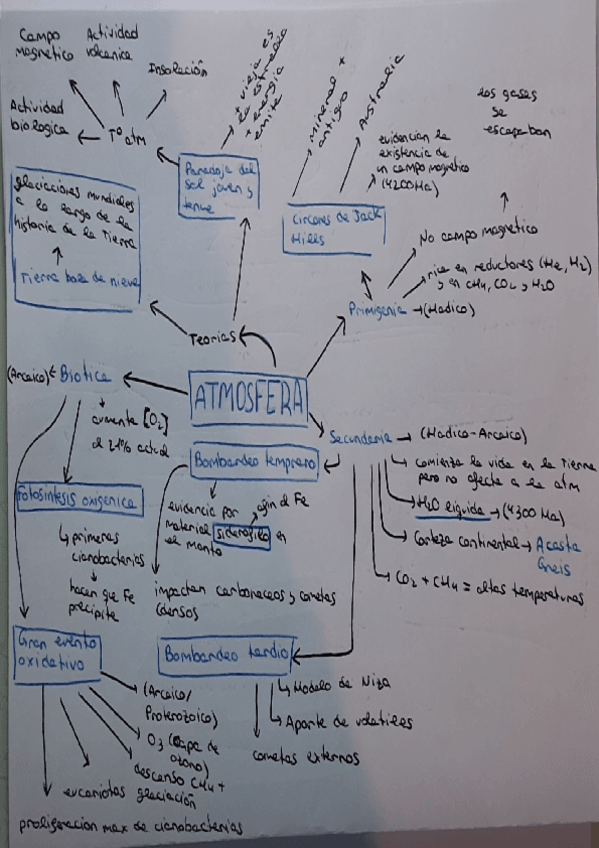 Campo
magnetico
Actividad
volcanica
Insolación
Actividad
biologica
Tº atm
+ vieja es
la estrella
+ energia
emite
Paradoja del
sol joven y
tenue
Mineral +
antiguo
Australia
evidencian la
existencia de
un campo magnetico
(4200Ma)
Circones de Jack
Hills
los gases
se
escapaban
No campo magnetico
rica en reductores (He, H2)
y en CH4, CO2 y H2O
Primigenia → (Hadico)
glaciaciones mundiales
a lo largo de la
historia de la Tierra
Tierra bola de nieve
Teorias
ATMOSFERA
(Arcaico) Biotica
aumenta [O2]
al 21% actual
Fotosintesis oxigenica
primeras
cianobacterias
hacen que Fe
precipite
Secundaria → (Hadico-Arcaico)
comienza la vida en la Tierra
pero no afecta a la atm
H2O liquida → (4300 Ma)
Corteza continental → Acasta
Gneis
CO2 + CH4 = altas temperaturas
Bombardeo temprano
evidencia por
material siderofilo en
el manto
afin al Fe
impactan carbonaceos y cometas
(densos)
Bombardeo tardio
Modelo de Niza
Aporte de volatiles
cometas externos
Gran evento
oxidativo
(Arcaico/
Proterozoico)
O3 (capa de
ozono)
descenso CH4 +
glaciación
eucariotas
proligeracion max de cianobacterias